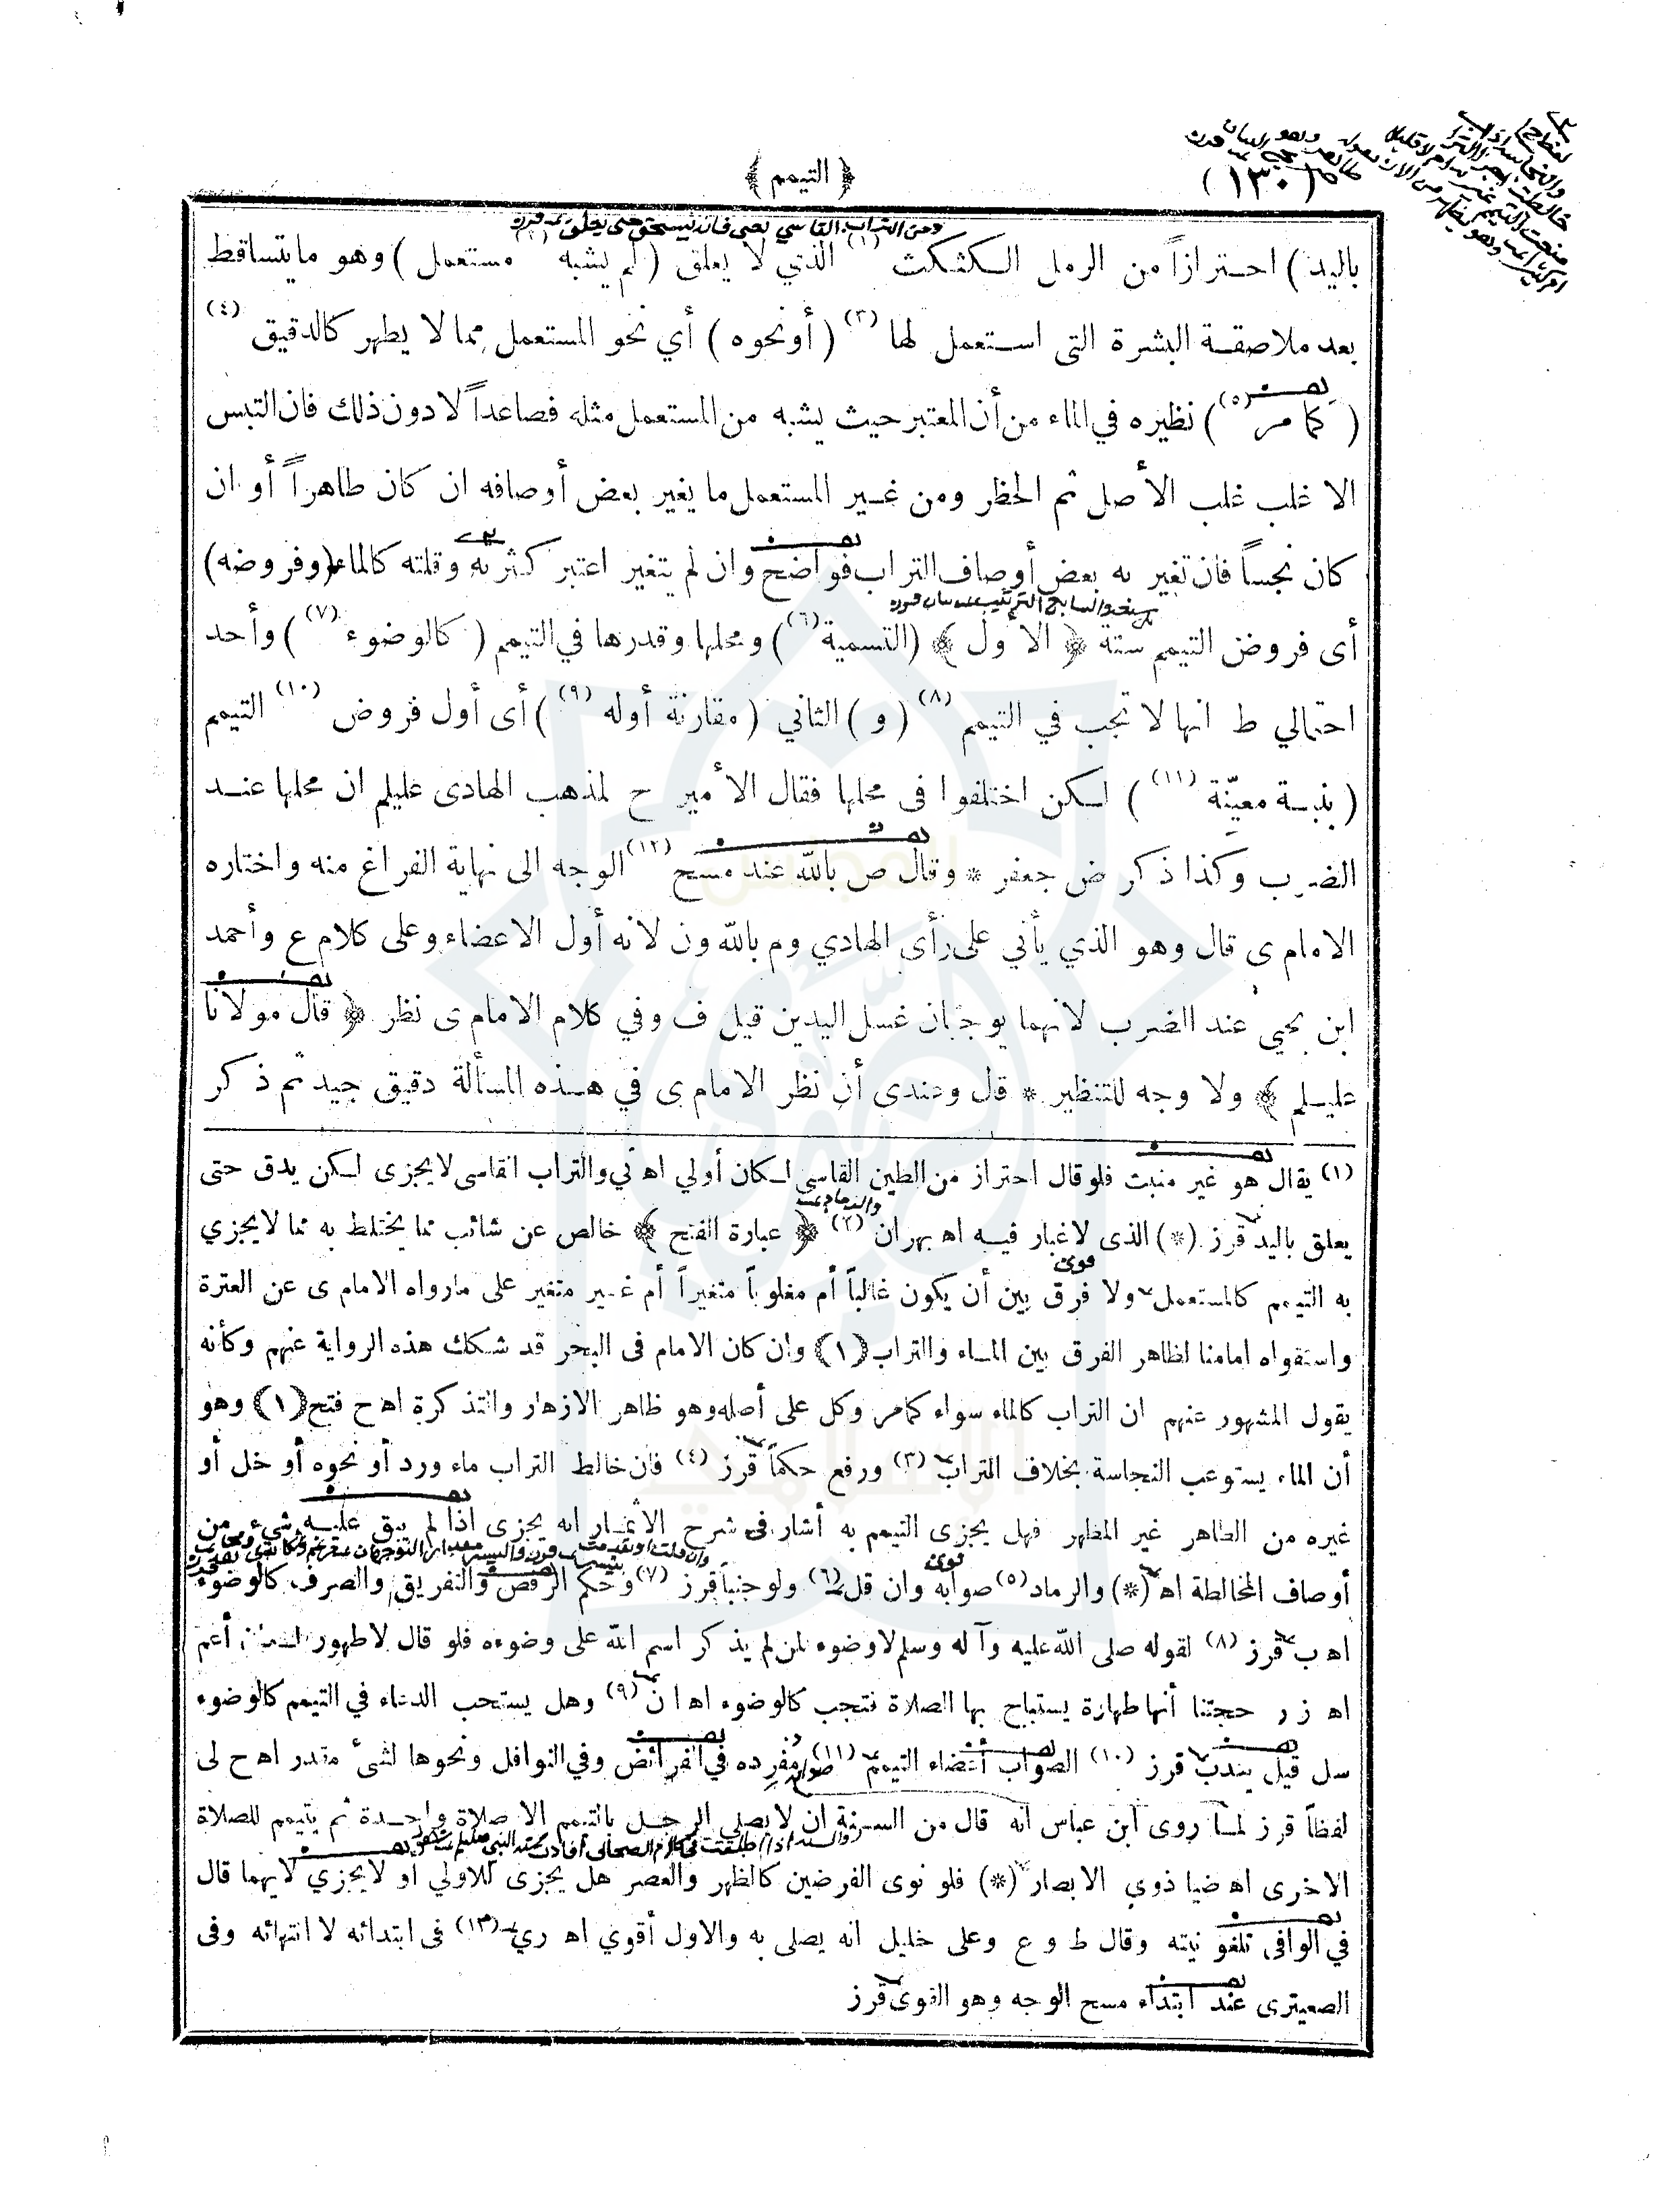 ﴿ التيمم ﴾
(١٣٠)
باليد ) احترازاً من الرمل الكشكث (١) الذي لا يعلق ( لم يشبه (٢) مستعمل ) وهو مايتساقط
بعد ملاصقة البشرة التى استعمل لها (٣) ( أونحوه ) أي نحو المستعمل مما لا يطهر كالدقيق (٤)
( كما مر (٥) ) نظيره في الماء من أن المعتبر حيث يشبه من المستعمل مثله فصاعداً لا دون ذلك فان التبس
الا غلب غلب الأصل ثم الحظر ومن غير المستعمل ما يغير بعض أوصافه ان كان طاهراً أو ان
كان نجساً فان تغير به بعض أوصاف التراب فواضح وان لم يتغير اعتبر كثرته وقلته كالماء (وفروضه)
أى فروض التيمم ستة ﴿ الأول ﴾ (التسمية (٦) ) ومحلها وقدرها في التيمم ( كالوضوء (٧) ) وأحد
احتمالي ط انها لا تجب في التيمم (٨) ( و ) الثاني ( مقارنة أوله (٩) ) أى أول فروض (١٠) التيمم
( بنية معيّنة (١١) ) لكن اختلفوا فى محلها فقال الأمير ح لمذهب الهادى عليلم ان محلها عند
الضرب وكذا ذكر ض جعفر * وقال ص بالله عند مسح (١٢) الوجه الى نهاية الفراغ منه واختاره
الامام ى قال وهو الذي يأتي على رأى الهادي وم بالله ون لانه أول الاعضاء وعلى كلام ع وأحمد
ابن يحيي عند الضرب لانهما يوجبان غسل اليدين قيل ف وفي كلام الامام ى نظر ﴿ قال مولانا
عليلم ﴾ ولا وجه للتنظير * قل وعندى أن نظر الامام ى في هذه المسألة دقيق جيد ثم ذكر
(١) يقال هو غير منبت فلو قال احتراز من الطين القاسى لكان أولي اه ني والتراب القاسى لا يجزى لكن يدق حتى
يعلق باليد قرز (*) الذى لا غبار فيه اه بهران (٢) ﴿ عبارة الفتح ﴾ خالص عن شائب مما يختلط به مما لا يجزي
به التيمم كالمستعمل ولا فرق بين أن يكون غالباً أم مغلوباً متغيراً أم غير متغير على مارواه الامام ى عن العترة
واستقواه امامنا لظاهر الفرق بين الماء والتراب (١) وان كان الامام فى البحر قد شكك هذه الرواية عنهم وكأنه
يقول المشهور عنهم ان التراب كالماء سواء كمامر وكل على أصله وهو ظاهر الازهار والتذكرة اه ح فتح (١) وهو
أن الماء يستوعب النجاسة بخلاف التراب (٣) ورفع حكماً قرز (٤) فان خالط التراب ماء ورد أو نحوه أو خل أو
غيره من الطاهر غير المطهر فهل يجزى التيمم به أشار فى شرح الأثمار انه يجزى اذا لم يبق عليه شيء من
أوصاف المخالطة اه (*) والرماد (٥) صوابه وان قل (٦) ولو جنباً قرز (٧) وحكم الرفض والتفريق والصرف كالوضوء
اه ب قرز (٨) لقوله صلى الله عليه وآله وسلم لا وضوء لمن لم يذكر اسم الله على وضوءه فلو قال لا طهور لكان أعم
اه ز ر حجتنا أنها طهارة يستباح بها الصلاة فتجب كالوضوء اه ان (٩) وهل يستحب الدعاء في التيمم كالوضوء
سل قيل يندب قرز (١٠) الصواب أعضاء التيمم (١١) مفرده في الفرائض وفي النوافل ونحوها لشئ متدر اه ح لى
لفظاً قرز لما روى ابن عباس انه قال من السنة ان لا يصلى الرجل بالتيمم الا صلاة واحدة ثم يتيمم للصلاة
الاخرى اه ضيا ذوي الابصار (*) فلو نوى الفرضين كالظهر والعصر هل يجزى للاولي او لا يجزي لايهما قال
في الوافى تلغو نيته وقال ط و ع وعلى خليل انه يصلى به والاول أقوي اه ري (١٢) فى ابتدائه لا انتهائه وفى
الصعيترى عند ابتداء مسح الوجه وهو القوى قرز